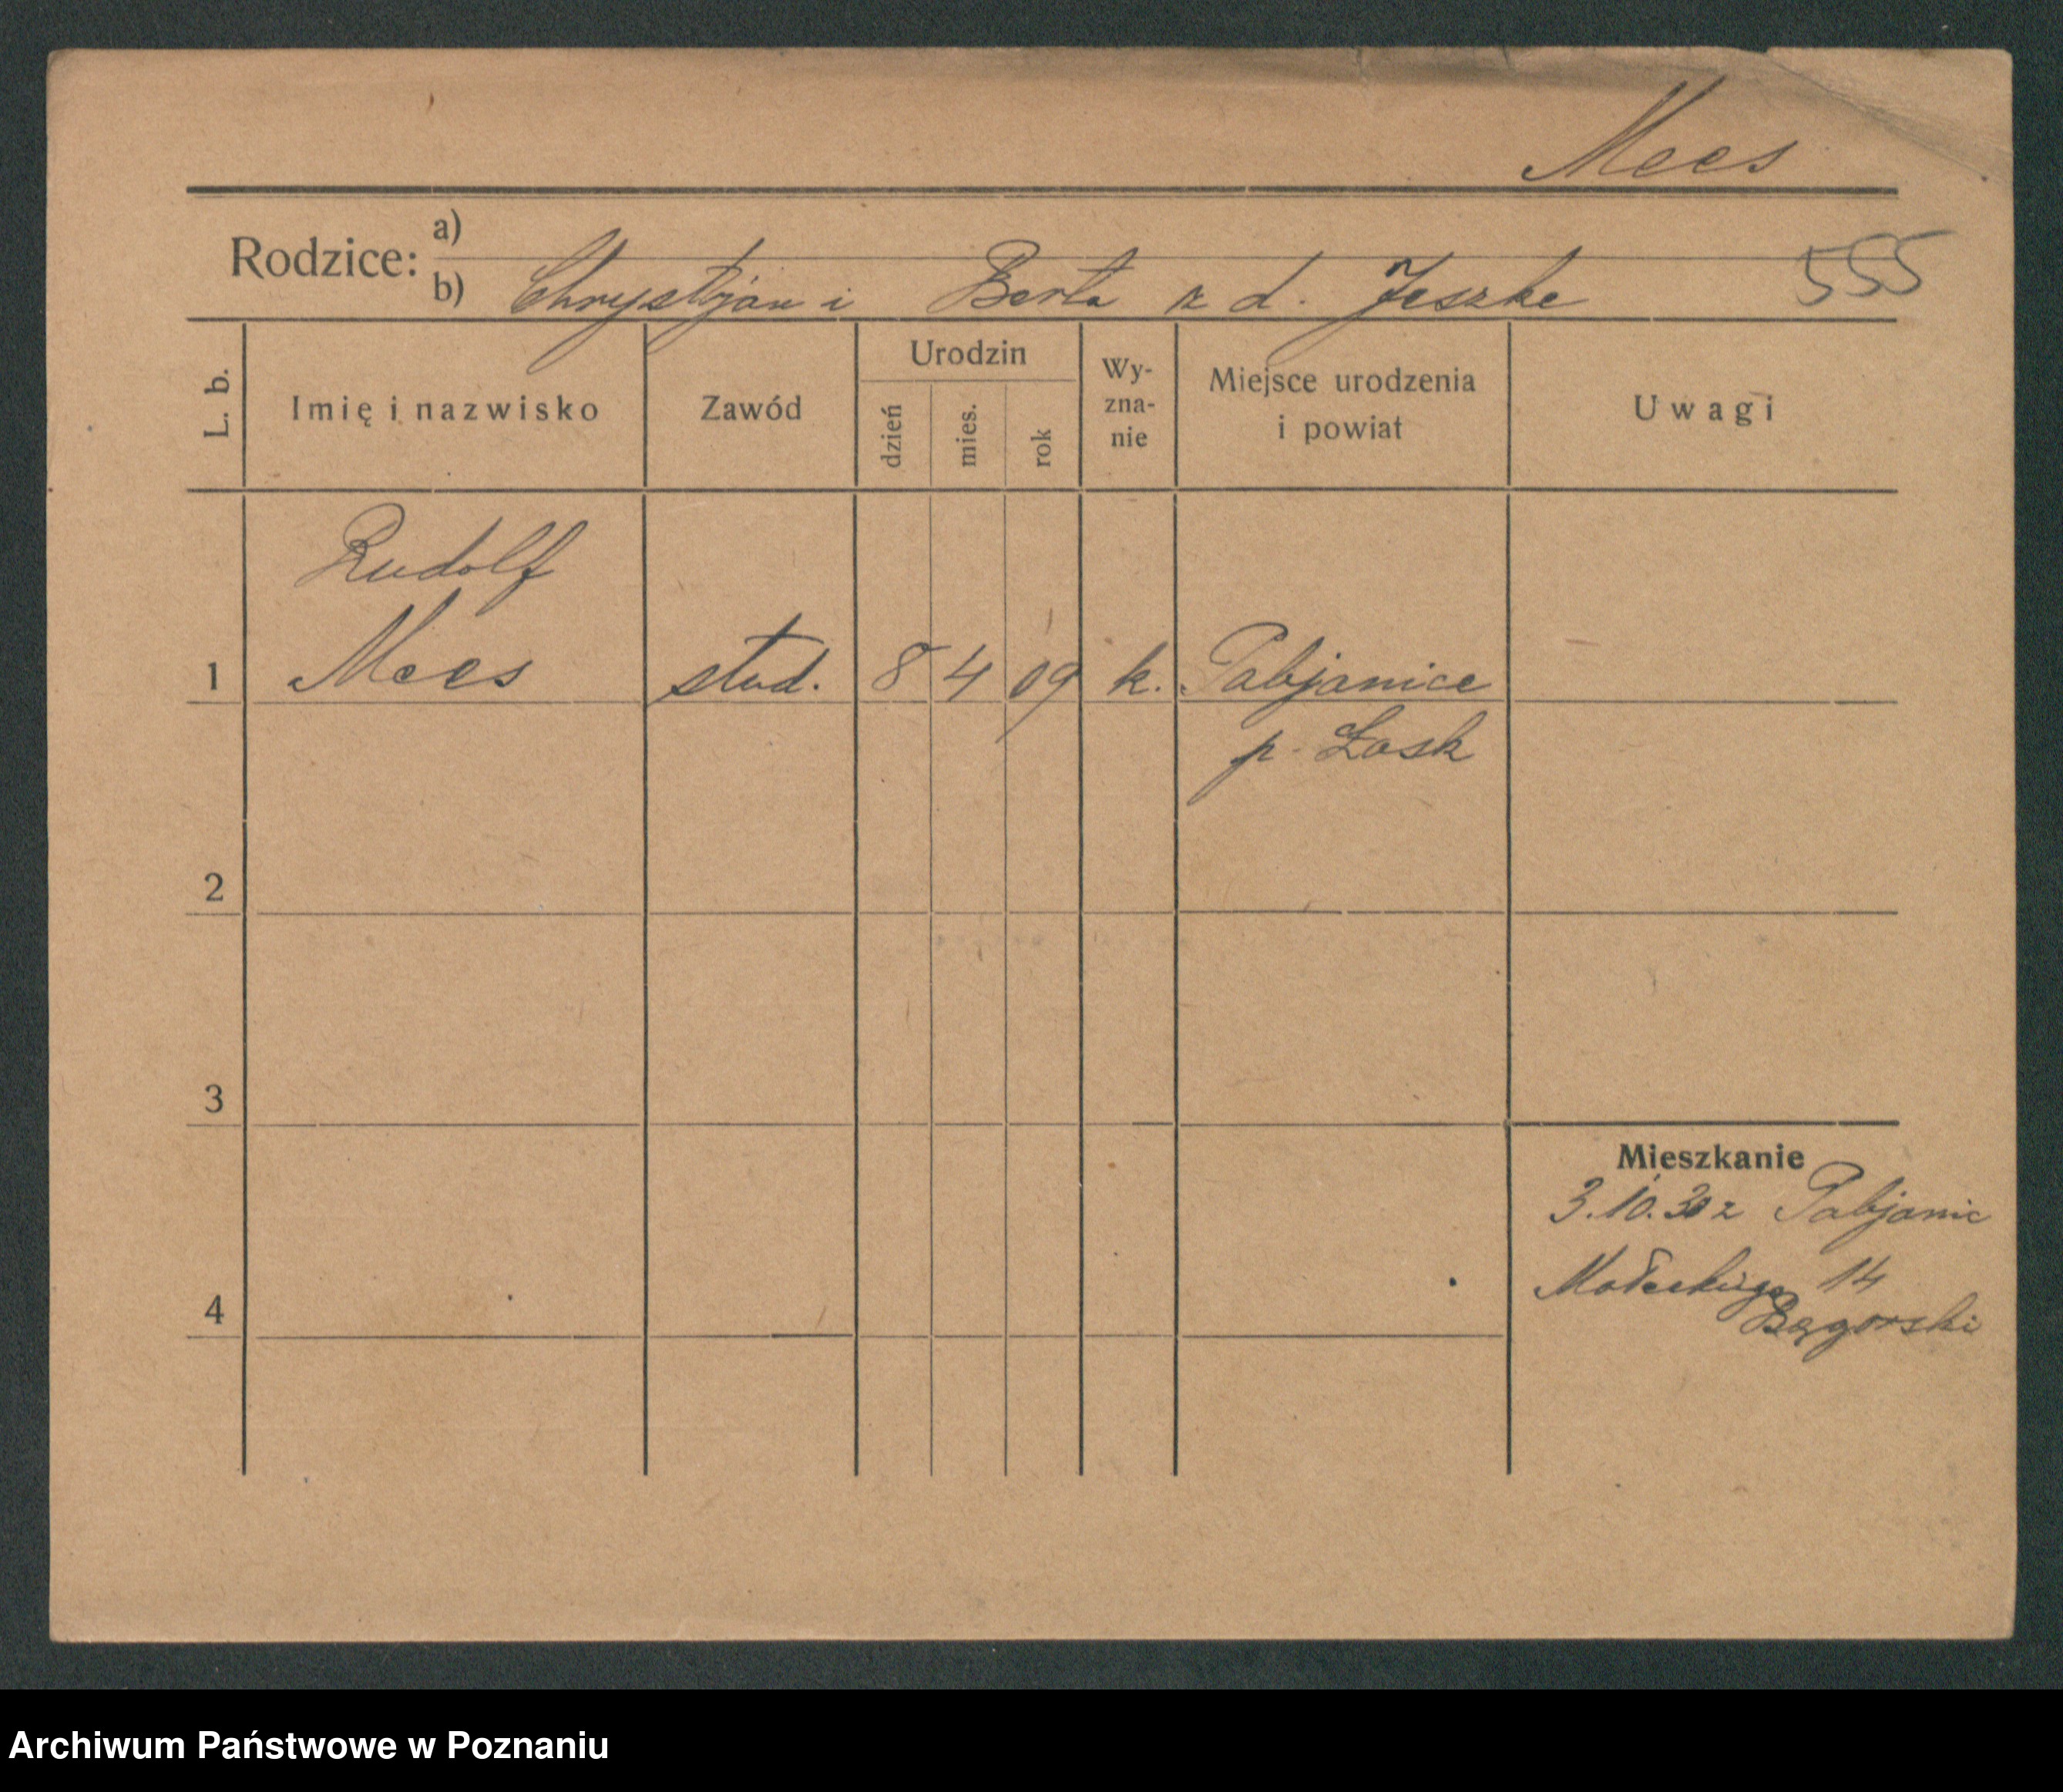 Mees
Rodzice:
a)
b) Chrystjan i Berta z d. Jeszke
555
L. b.
Imię i nazwisko
Zawód
Urodzin
dzień
mies.
rok
Wy-
zna-
nie
Miejsce urodzenia
i powiat
Uwagi
Rudolf
1 Mees stud. 8 4 09 k. Pabjanice
p. Łask
2
3
Mieszkanie
3.10.30 z Pabjanic
Małeckiego 14
4
Bągorski
Archiwum Państwowe w Poznaniu